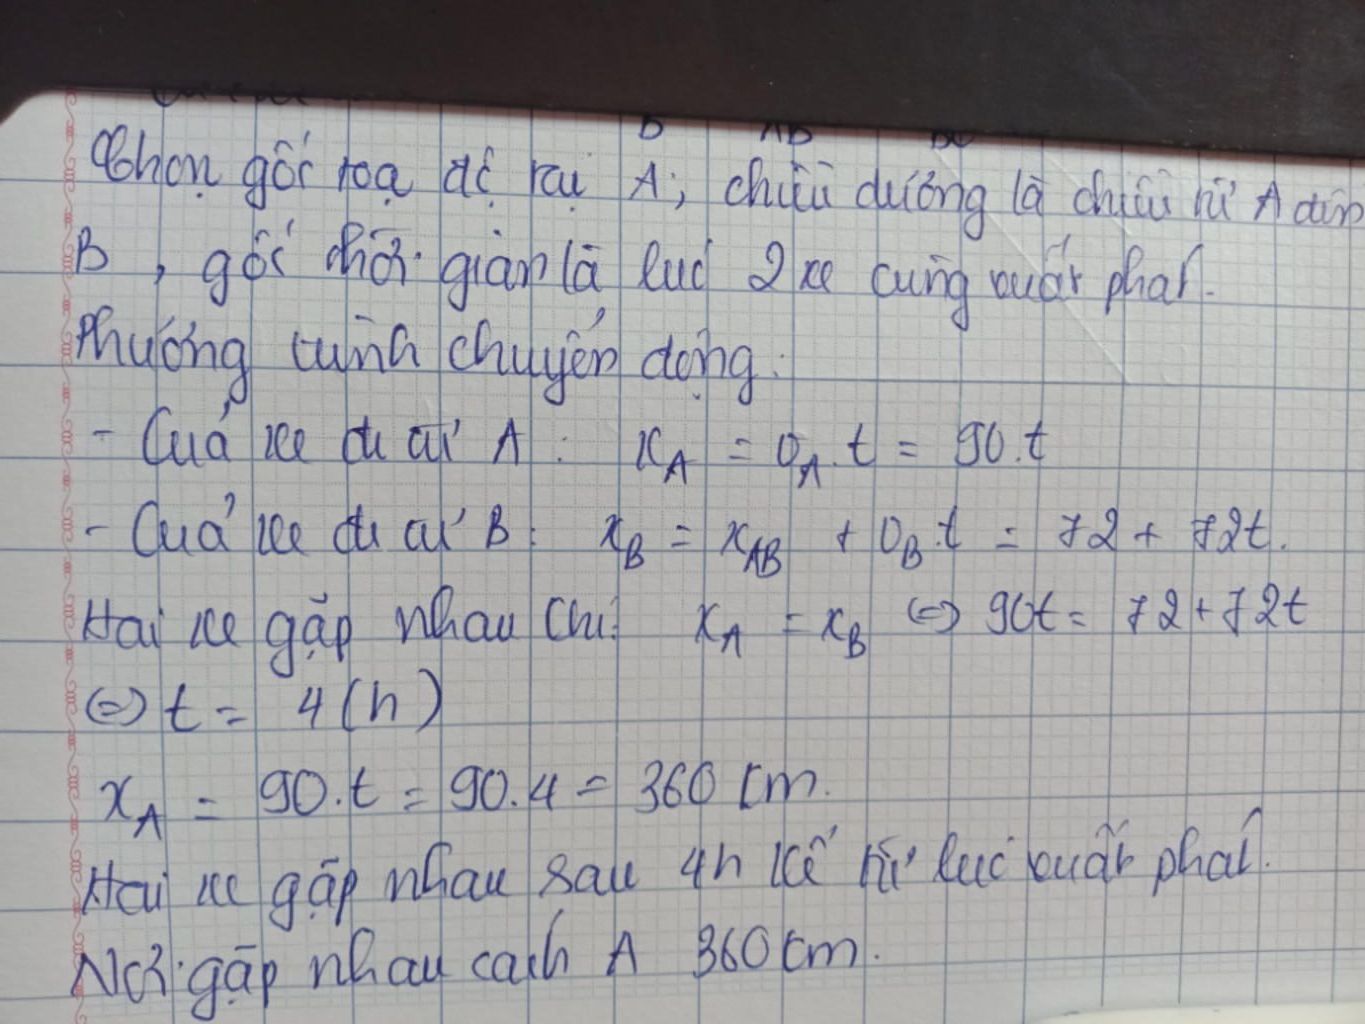 B AB
Chọn gốc toạ độ tại A, chiều dương là chiều từ A đến
B, gốc thời gian là lúc 2 xe cùng xuất phát.
Phương trình chuyển động:
- Của xe đi từ A: x_A = v_A.t = 90.t
- Của xe đi từ B: x_B = x_AB + v_B.t = 72 + 72t.
Hai xe gặp nhau khi: x_A = x_B ⇔ 90t = 72 + 72t
⇔ t = 4 (h)
x_A = 90.t = 90.4 = 360 km.
Hai xe gặp nhau sau 4h kể từ lúc xuất phát.
Nơi gặp nhau cách A 360 km.